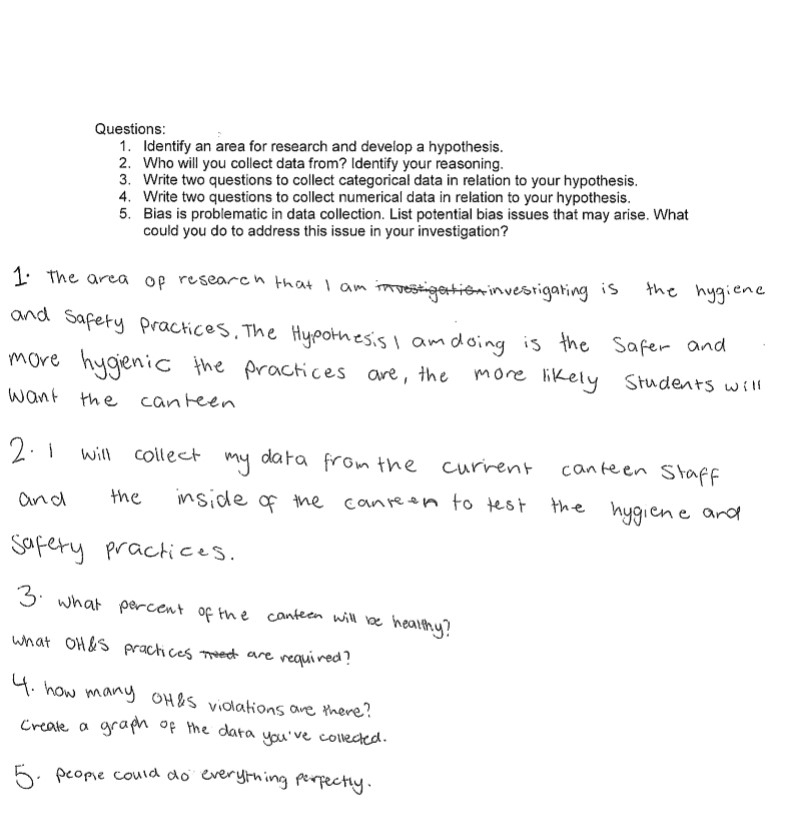 Questions:
1. Identify an area for research and develop a hypothesis.
2. Who will you collect data from? Identify your reasoning.
3. Write two questions to collect categorical data in relation to your hypothesis.
4. Write two questions to collect numerical data in relation to your hypothesis.
5. Bias is problematic in data collection. List potential bias issues that may arise. What
could you do to address this issue in your investigation?
1. The area of research that I am investigation investigating is the hygiene
and Safety Practices. The Hypothesis I am doing is the Safer and
more hygienic the practices are, the more likely Students will
want the canteen
2. I will collect my data from the current canteen Staff
and the inside of the canteen to test the hygiene and
Safety practices.
3. what percent of the canteen will be healthy?
what OH&S practices need are required?
4. how many OH&S violations are there?
Create a graph of the data you've collected.
5. people could do everything perfectly.